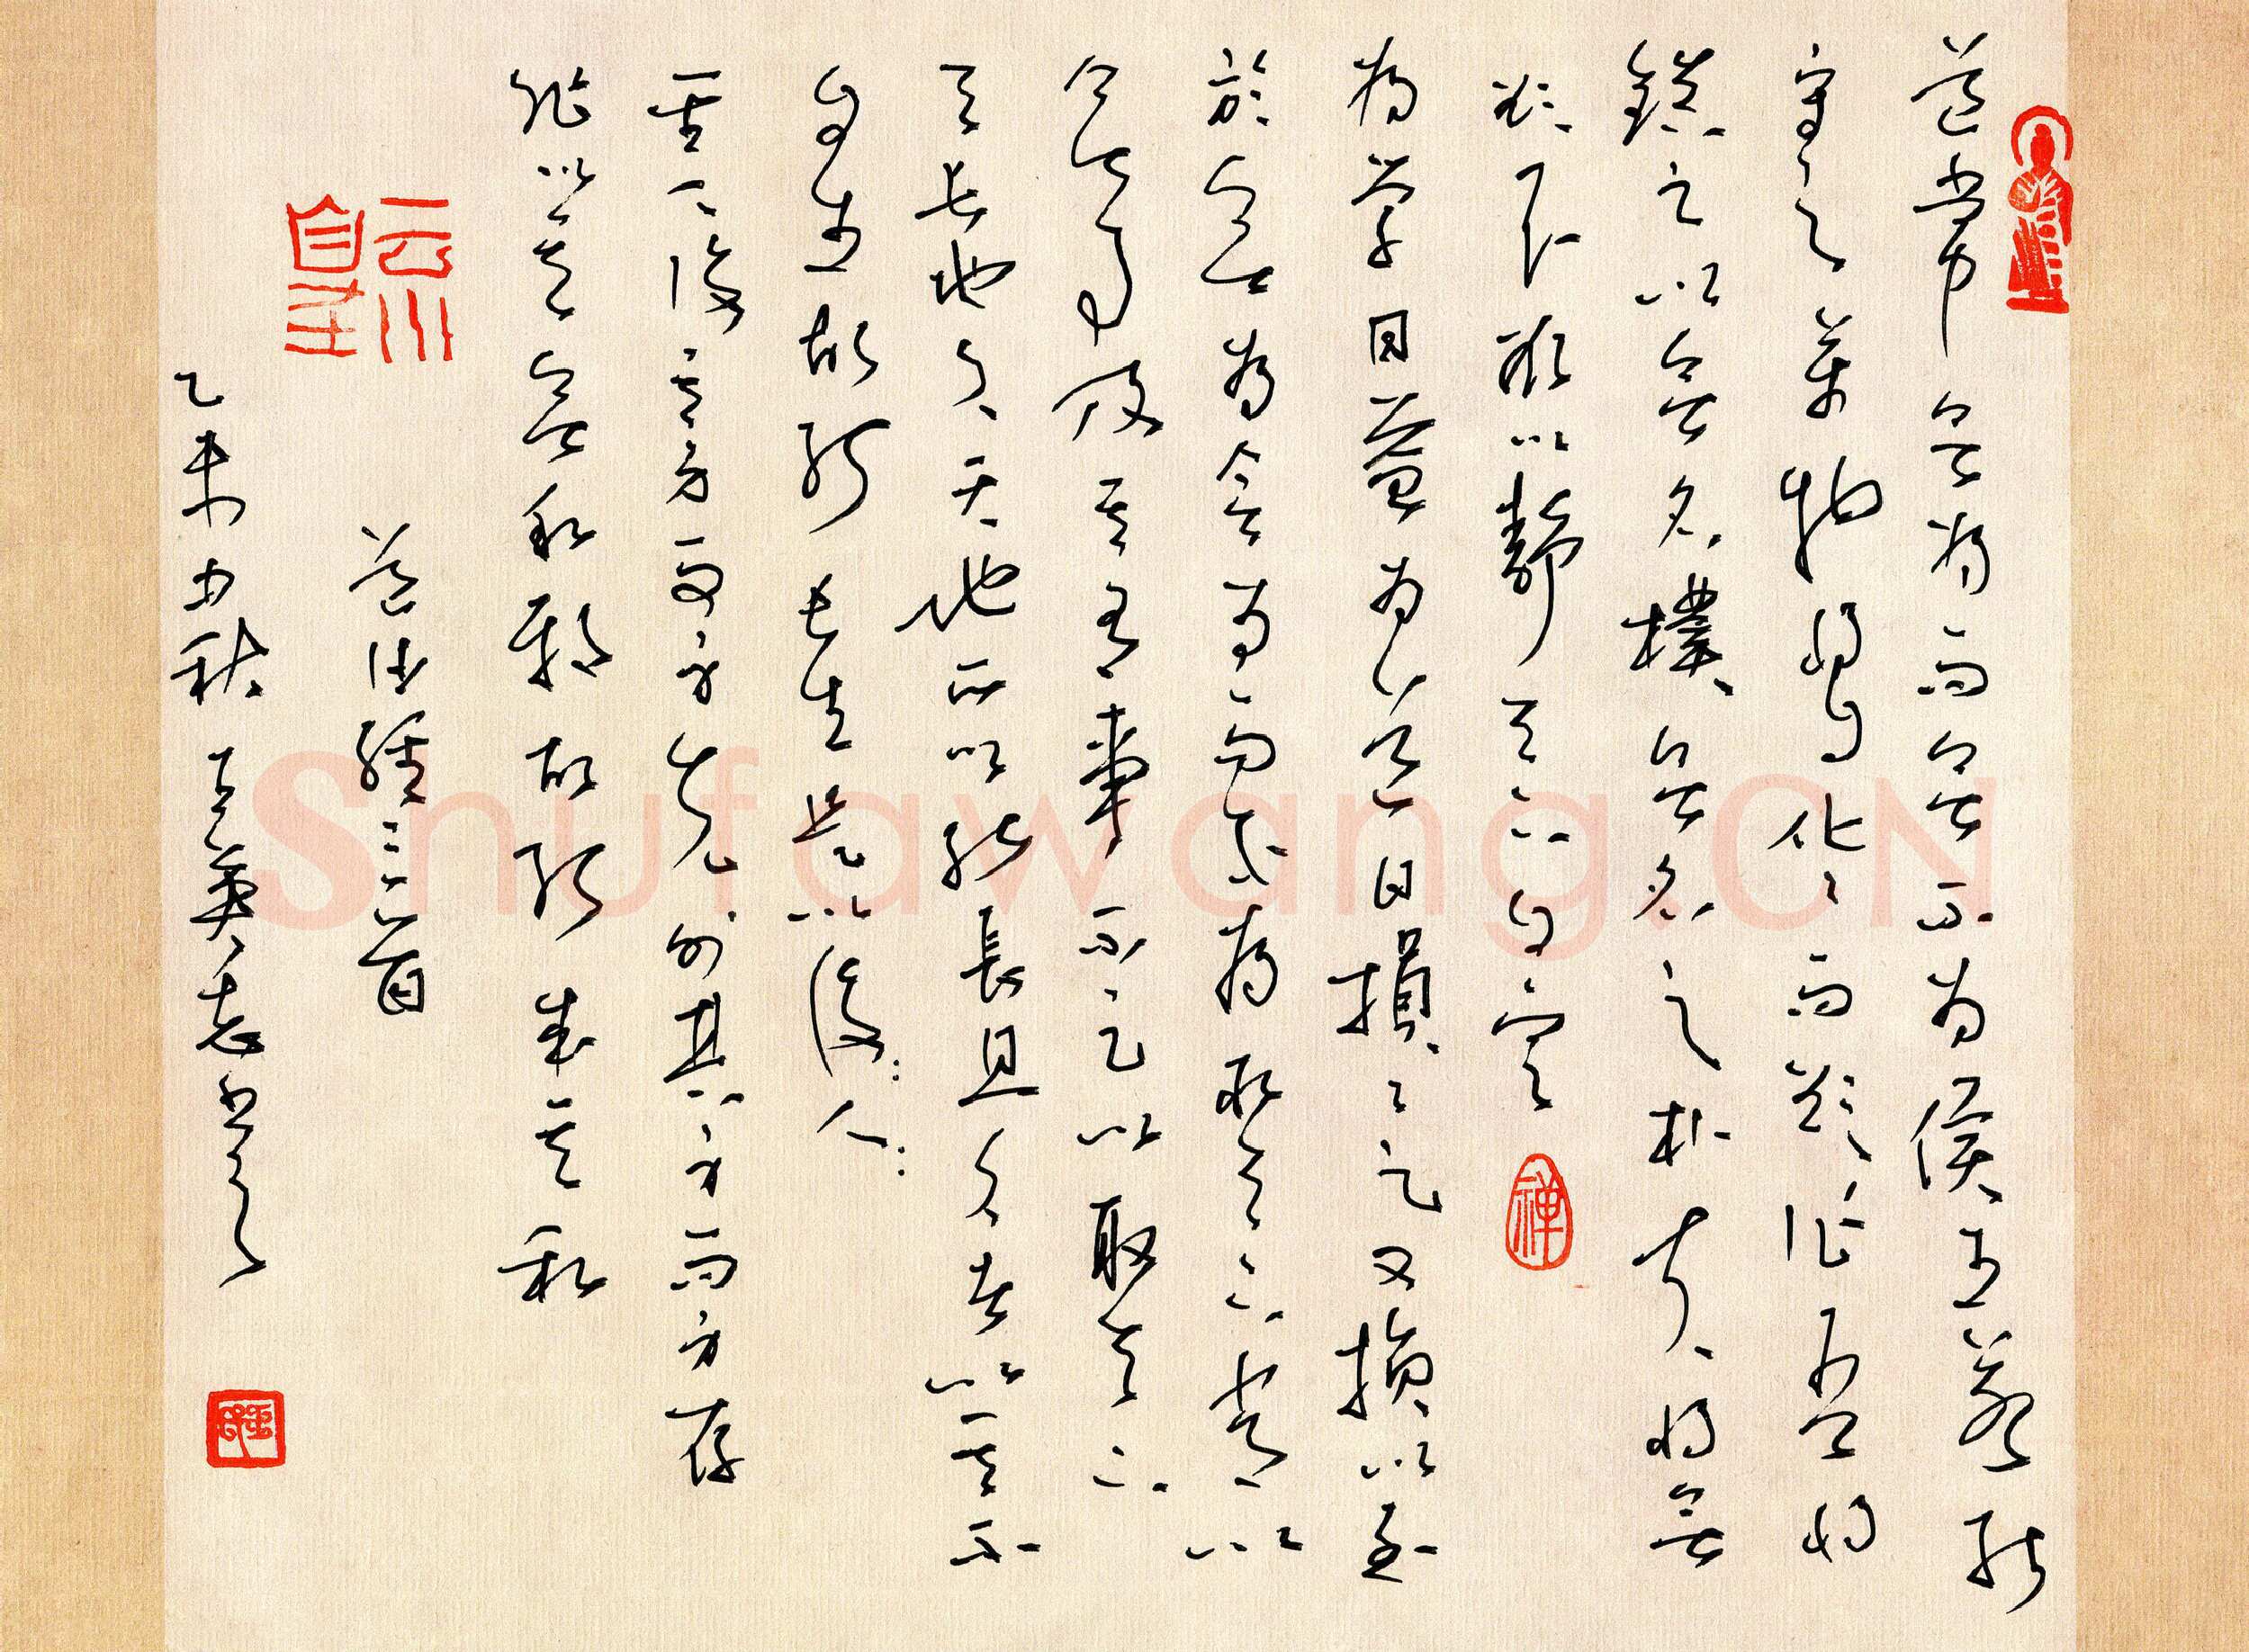 道常無為而無不為侯王若能
守之萬物將自化化而欲作吾將
鎮之以無名樸無名之朴夫將無
欲不欲以靜天下自定
禅
為學日益為道日損損之又損以至
於無為無為而不為取天下常以
無事及其有事不足以取天下
天長地久天地所以能長且久者以其不
自生故能長生是以後人
聖人後其身而身先外其身而身存
非以其無私邪故能成其私
道德經三首
乙未中秋
Shufawang.CN